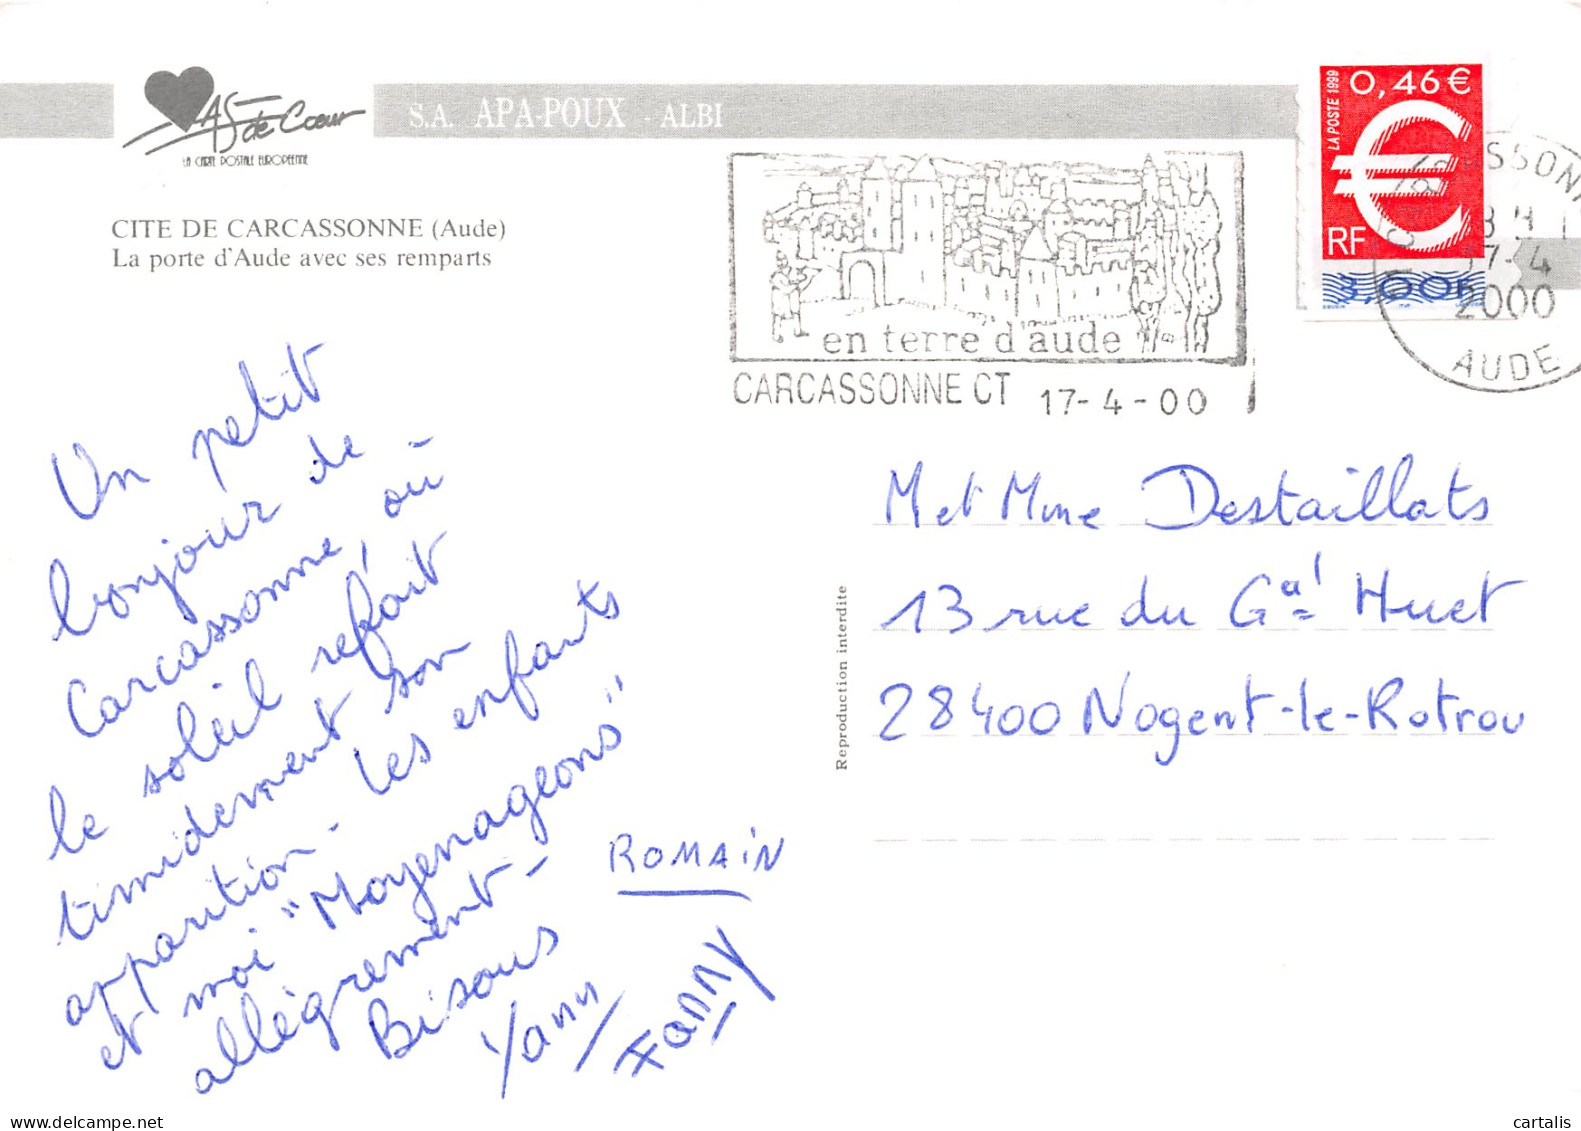 As de Coeur
LA CARTE POSTALE EUROPÉENNE
S.A. APA-POUX - ALBI
CITE DE CARCASSONNE (Aude)
La porte d'Aude avec ses remparts
en terre d'aude
CARCASSONNE CT 17-4-00
0,46 €
LA POSTE 1999
RF
3,00F
17-4
2000
AUDE
Un petit
bonjour de
Carcassonne, où
le soleil refait
timidement son
apparition - les enfants
et moi "Moyenageons"
allégrement -
Bisous
Yann
ROMAIN
Fanny
Reproduction interdite
M et Mme Destaillats
13 rue du Gal Huet
28400 Nogent-le-Rotrou
cartalis